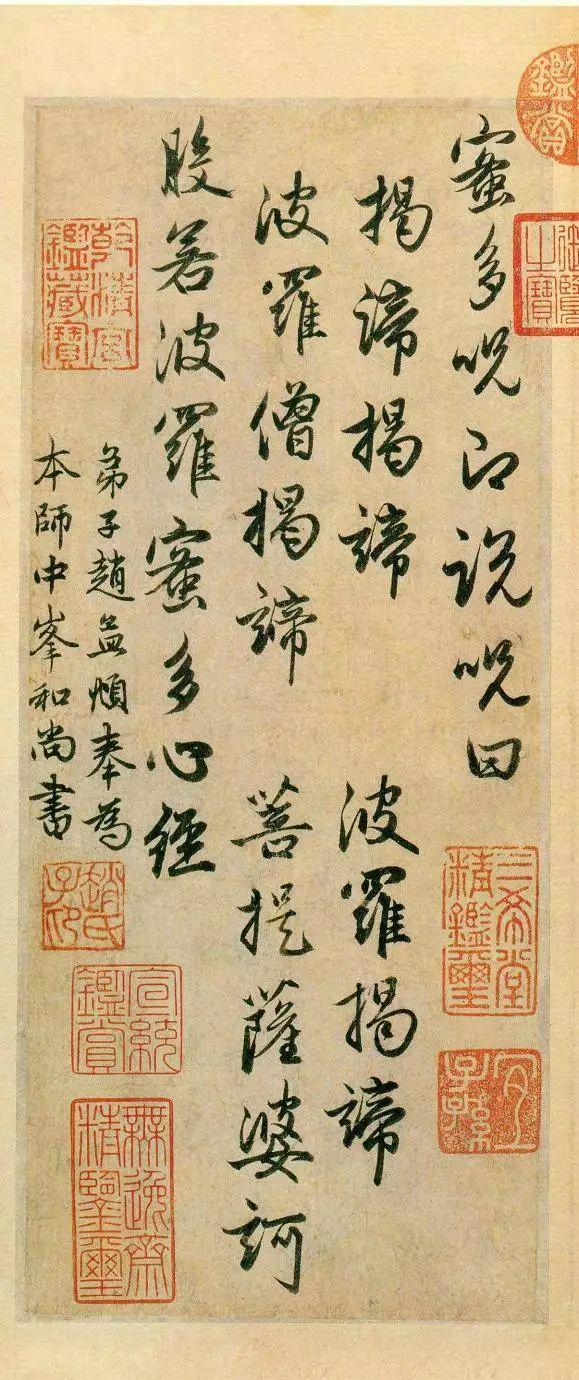 蜜多呪即説呪曰
揭諦揭諦 波羅揭諦
波羅僧揭諦 菩提薩婆訶
般若波羅蜜多心經
弟子趙孟頫奉為
本師中峯和尚書
鑑賞
御覽之寶
三希堂精鑑璽
宜子孫
乾清宮鑑藏寶
趙氏子印
宣統鑑賞
無逸齋精鑒璽